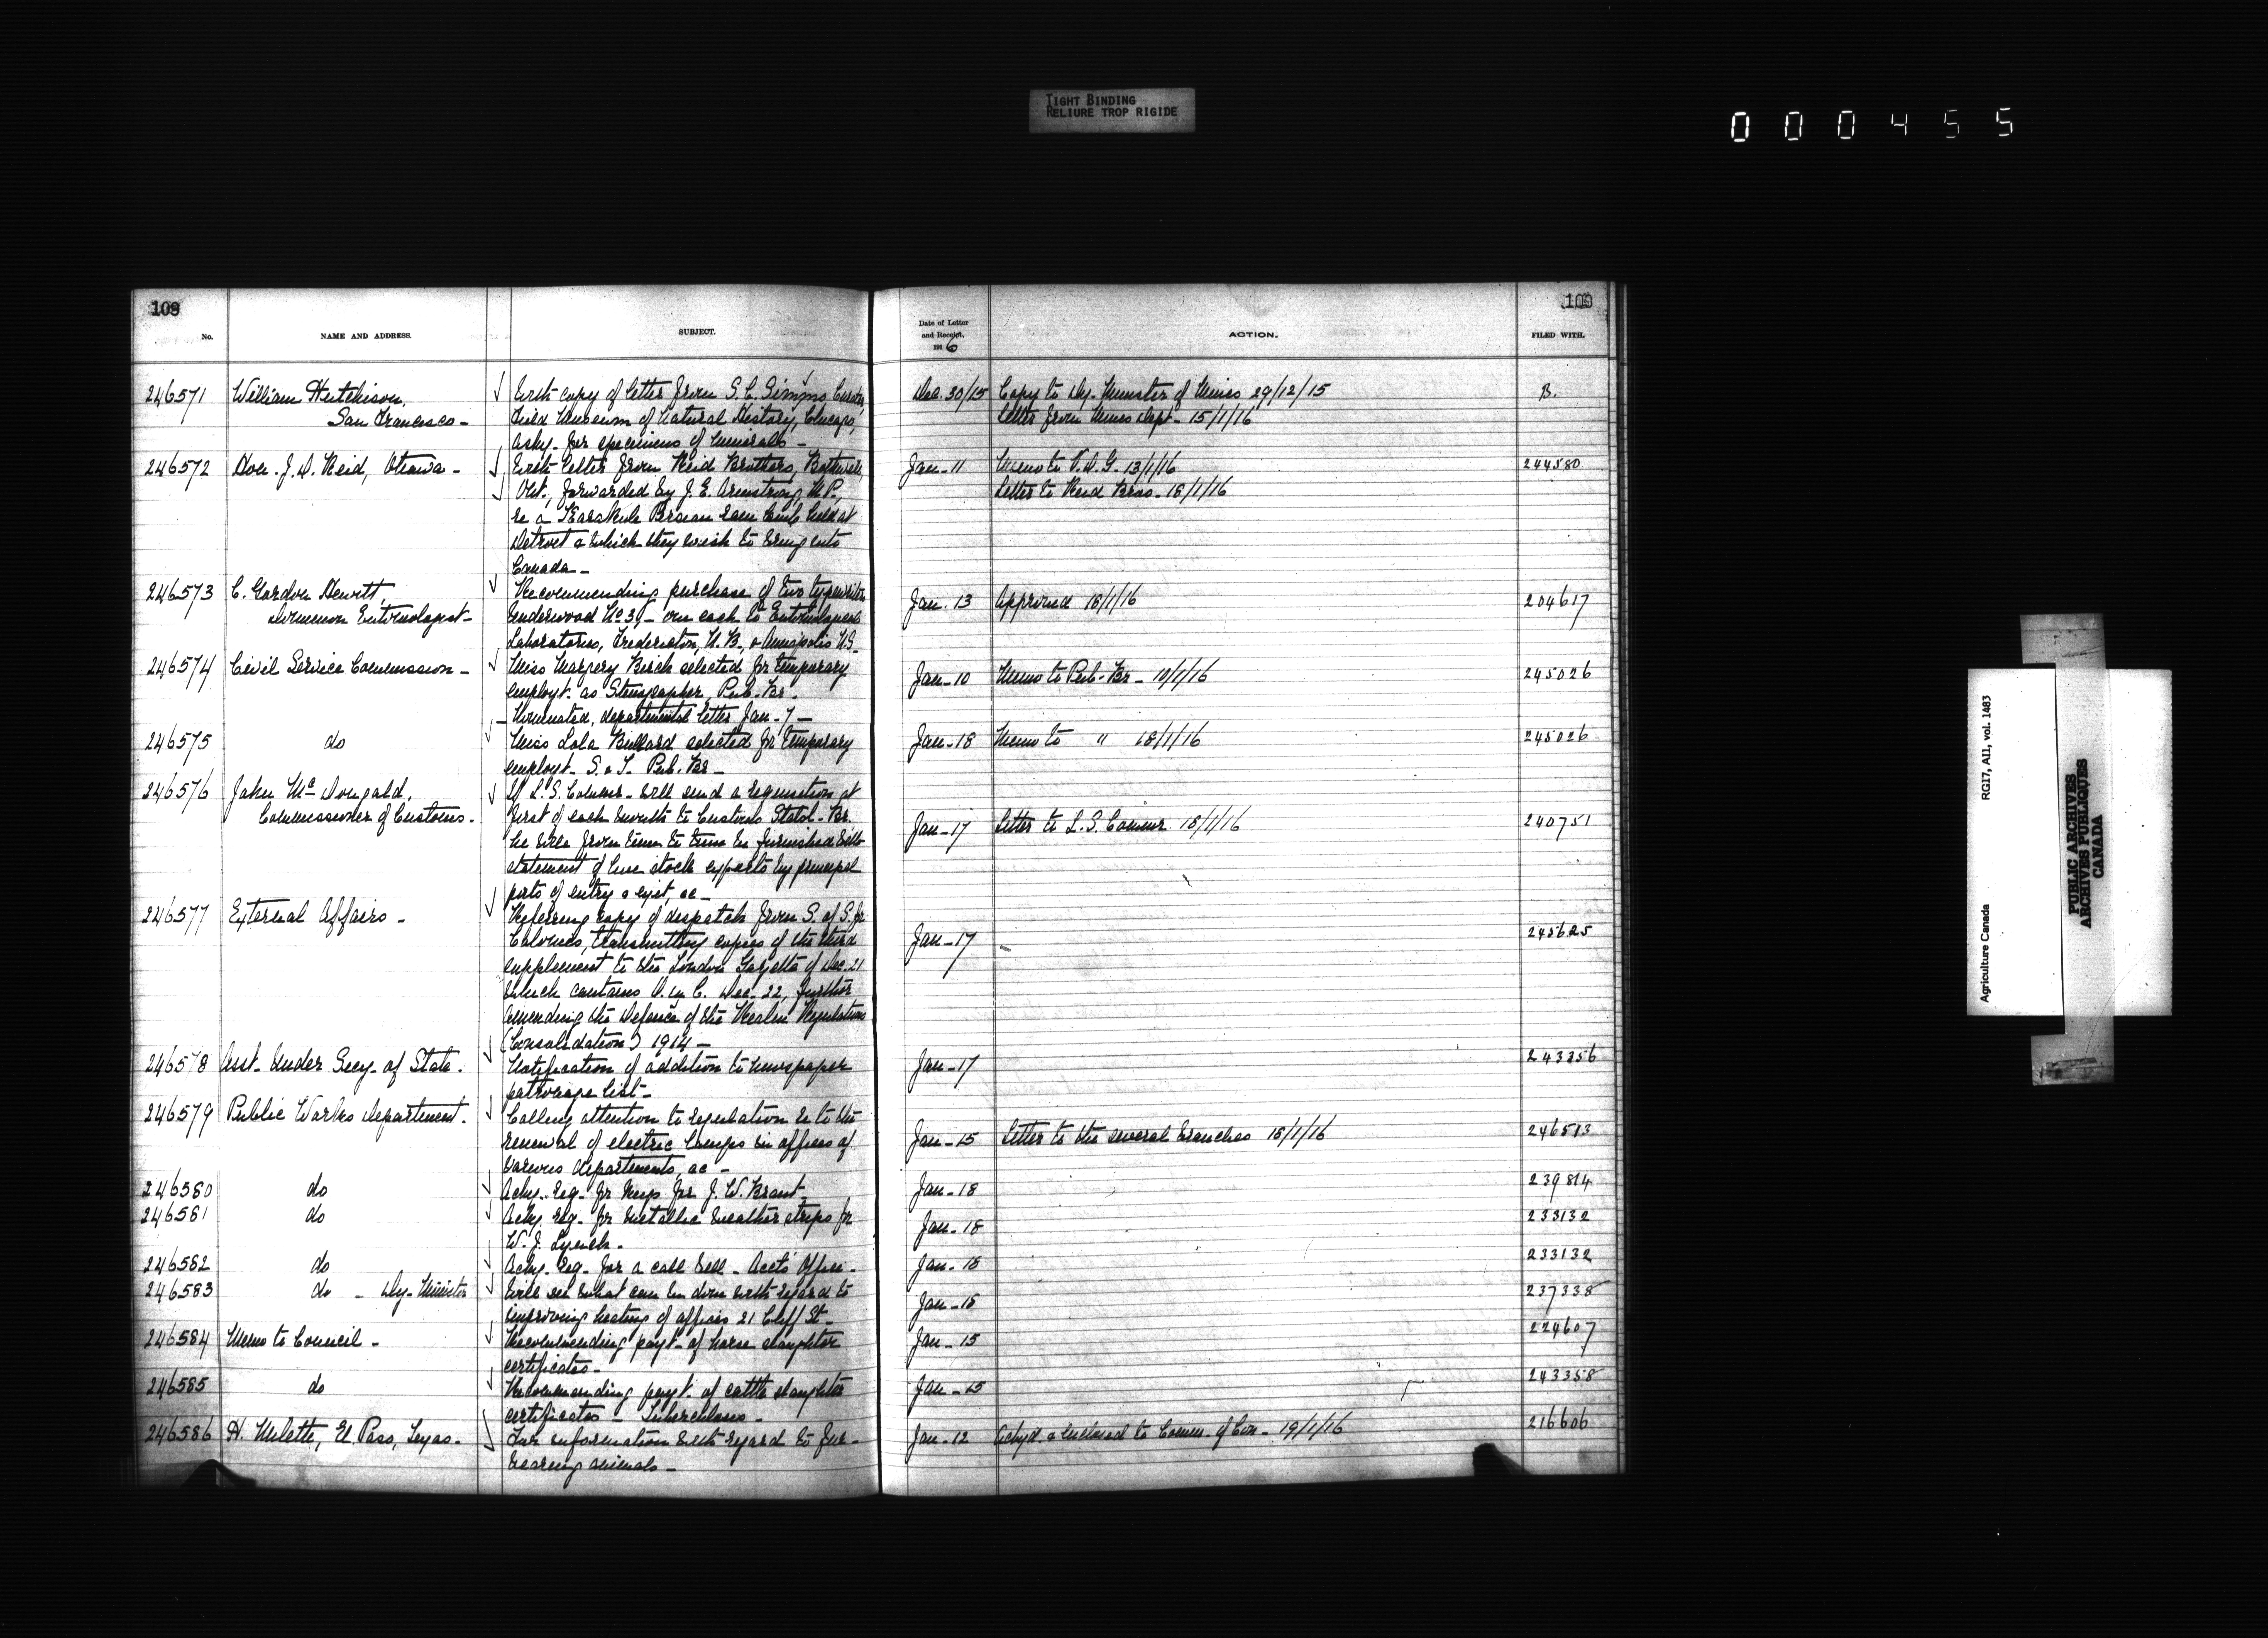 TIGHT BINDING
RELIURE TROP RIGIDE
000455
109
No.
NAME AND ADDRESS.
SUBJECT.
Date of Letter
and Receipt,
1916
ACTION.
109
FILED WITH.
246571 William Hutchison,
San Francisco -
With copy of letter from S. C. Simms Curator,
Field Museum of Natural History, Chicago,
Askg. for specimens of minerals -
Dec. 30/15 Copy to Dy. Minister of Mines 29/12/15
Letter from Mines Dept - 15/1/16
B.
246572 Hon. J. D. Reid, Ottawa -
With letter from Reid Brothers, Bothwell,
Ont., forwarded by J. E. Armstrong, M.P.,
re a Karakule Persian ram lamb held at
Detroit & which they wish to bring into
Canada -
Jan - 11 Memo to V. D. G. 13/1/16
Letter to Reid Bros. 18/1/16
244580
246573 C. Gordon Hewitt,
Dominion Entomologist -
Recommending purchase of two typewriters
Underwood No 3, - one each to Entomological
Laboratories, Fredericton, N.B., & Annapolis N.S.
Jan. 13 Approved 18/1/16
204617
246574 Civil Service Commission -
Miss Margery Birch selected for temporary
employt. as Stenographer, Pub. Br. -
Nominated, departmental letter Jan. 7 -
Jan - 10 Memo to Pub. Br - 10/1/16
245026
246575 do
Miss Lola Bullard selected for temporary
employt. S. & T. Pub. Br -
Jan - 18 Memo to " 18/1/16
245026
246576 John McDougald,
Commissioner of Customs.
If L. S. Commr. will send a requisition at
first of each month to Customs Statcl. Br.
he will from time to time be furnished with
statement of live stock exports by principal
ports of entry & exit, &c -
Jan - 17 Letter to L. S. Commr. 18/1/16
240751
246577 External Affairs -
Referring copy of despatch from S. of S. for
Colonies, transmitting copies of the third
supplement to the London Gazette of Dec. 21
which contains O. in C. Dec. 22, further
amending the Defence of the Realm Regulations
(Consolidation) 1914 -
Jan - 17
245625
246578 Asst. Under Secy. of State.
Notification of addition to newspaper
patronage list -
Jan - 17
243356
246579 Public Works Department.
Calling attention to regulation re to the
renewal of electric lamps in offices of
various departments, &c -
Jan - 15 Letter to the several branches 18/1/16
246513
246580 do
Ackg. req. for keys for J. W. Brant.
Jan - 18
239814
246581 do
Ackg. req. for metallic weather strips for
W. J. Lynch -
Jan - 18
233132
246582 do
Ackg. req. for a call bell - Acct's Office -
Jan - 18
233132
246583 do - Dy. Minister
Will see what can be done with regard to
improving heating of offices 21 Cliff St -
Jan - 18
237338
246584 Memo to Council -
Recommending payt. of horse slaughter
certificates -
Jan - 15
224607
246585 do
Recommending payt. of cattle slaughter
certificates - Tuberculosis -
Jan - 15
243358
246586 H. Milette, El Paso, Texas -
For information with regard to fur-
bearing animals -
Jan - 12 Ackgd. & enclosed to Comm. of Con - 19/1/16
216606
Agriculture Canada
RG17, AII, vol. 1483
PUBLIC ARCHIVES
ARCHIVES PUBLIQUES
CANADA